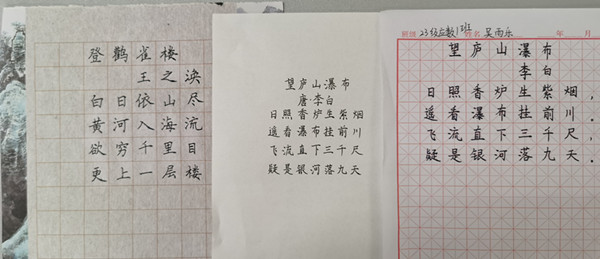 登鹳雀楼
王之涣
白日依山尽
黄河入海流
欲穷千里目
更上一层楼
望庐山瀑布
唐·李白
日照香炉生紫烟
遥看瀑布挂前川
飞流直下三千尺
疑是银河落九天
班级 23级应数1班 姓名 吴雨乐 年 月
望庐山瀑布
李白
日照香炉生紫烟，
遥看瀑布挂前川。
飞流直下三千尺，
疑是银河落九天。